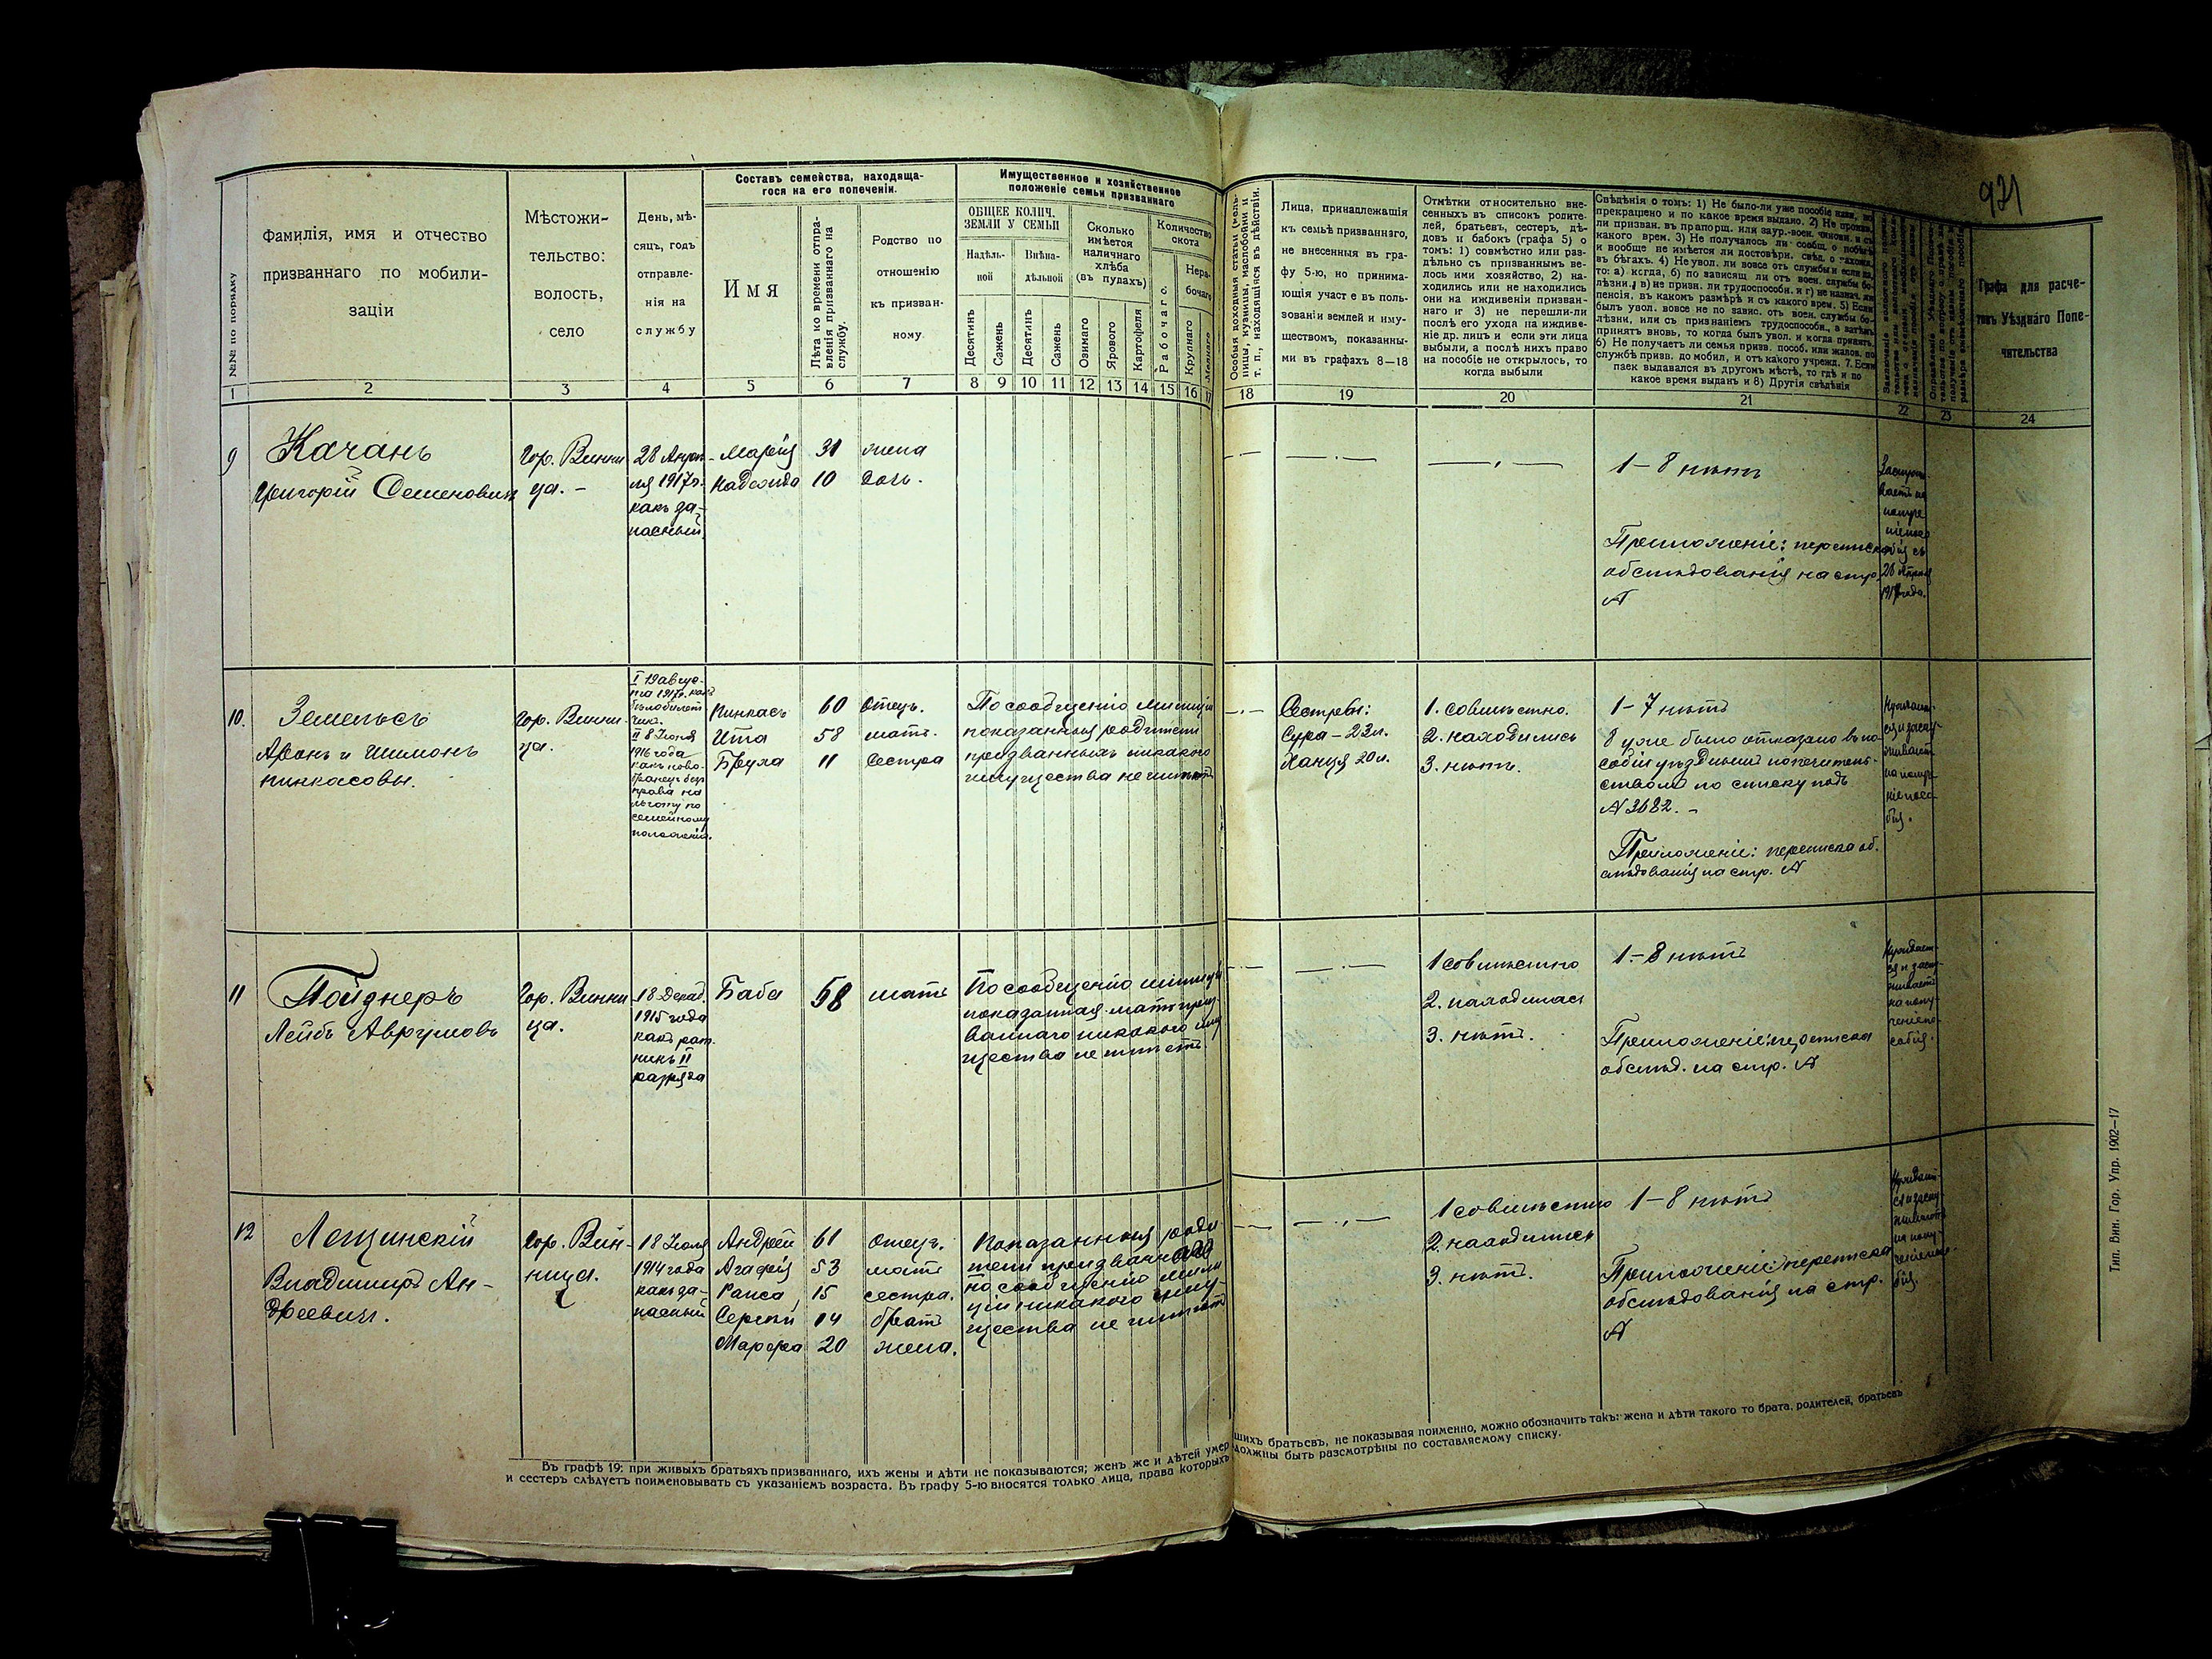 921
Составъ семейства, находяща-
гося на его попеченіи.
Имущественное и хозяйственное
положеніе семьи призваннаго
№№ по порядку
Фамилія, имя и отчество
призваннаго по мобили-
заціи
Мѣстожи-
тельство:
волость,
село
День, мѣ-
сяцъ, годъ
отправле-
нія на
службу
Имя
Лѣта ко времени отпра-
вленія призваннаго на
службу.
Родство по
отношенію
къ призван-
ному.
ОБЩЕЕ КОЛИЧ.
ЗЕМЛИ У СЕМЬИ
Надѣль-
ной
Внѣна-
дѣльной
Десятинъ
Сажень
Десятинъ
Сажень
Сколько
имѣется
наличнаго
хлѣба
(въ пудахъ)
Озимаго
Ярового
Картофеля
Количество
скота
Рабочаго.
Нера-
бочаго
Крупнаго
Мелкаго
Особыя доходныя статьи (мель-
ницы, кузницы, маслобойни и
т. п., находящіяся въ дѣйствіи.
Лица, принадлежащія
къ семьѣ призваннаго,
не внесенныя въ гра-
фу 5-ю, но принима-
ющія участ е въ поль-
зованіи землей и иму-
ществомъ, показанны-
ми въ графахъ 8—18
Отмѣтки относительно вне-
сенныхъ въ списокъ родите-
лей, братьевъ, сестеръ, дѣ-
довъ и бабокъ (графа 5) о
томъ: 1) совмѣстно или раз-
дѣльно съ призваннымъ ве-
лось ими хозяйство, 2) на-
ходились или не находились
они на иждивеніи призван-
наго и 3) не перешли-ли
послѣ его ухода на иждиве-
ніе др. лицъ и если эти лица
выбыли, а послѣ нихъ право
на пособіе не открылось, то
когда выбыли
Свѣдѣнія о томъ: 1) Не было-ли уже пособіе
прекращено и по какое время выдано. 2) Не
ли призван. въ прапорщ. или заур.-воен. чиновн. и съ
какого врем. 3) Не получалось ли сообщ. о побѣгѣ
и вообще не имѣется ли достовѣрн. свѣд. о
въ бѣгахъ. 4) Не увол. ли вовсе отъ службы и если да,
то: а) когда, б) по зависящ ли отъ воен. службы бо-
лѣзни, в) не призн. ли трудоспособн. и г) не назнач. ли
пенсія, въ какомъ размѣрѣ и съ какого врем. 5) Если
былъ увол. вовсе не по завис. отъ воен. службы бо-
лѣзни, или съ признаніемъ трудоспособн., а затѣмъ
принятъ вновь, то когда былъ увол. и когда принятъ.
6) Не получаетъ ли семья призв. пособ. или жалов. по
службѣ призв. до мобил, и отъ какого учрежд. 7. Если
паек выдавался въ другомъ мѣстѣ, то гдѣ и по
какое время выданъ и 8) Другія свѣдѣнія
Графа для расче-
товъ Уѣзднаго Попе-
чительства
1 2 3 4 5 6 7 8 9 10 11 12 13 14 15 16 17 18 19 20 21 22 23 24
9
Качанъ
Григорій Семеновичъ
Гор. Винни
ца. –
28 Апрѣ-
ля 1917г.
какъ за-
пасный.
Марія 31 жена
Надежда 10 дочь.
1–8 нѣтъ
Приложеніе: переписка
обслѣдованія на стр.
№
28 Апрѣля
1917 года.
10.
Земельсъ
Аронъ и Шимонъ
Пинкасовы.
Гор. Винни-
ца.
I 19 авгус-
та 1917г. какъ
бѣлобилет
чик.
II 8 Іюня
1916 года
какъ ново-
бранецъ безъ
права на
льготу по
семейному
положенію.
Пинкасъ 60 Отецъ.
Ита 58 мать.
Бруха 11 Сестра
По сообщенію милиціи
показанные родители
призванныхъ никакого
имущества не имѣютъ
Сестры:
Сура – 23 л.
Ханця 20 л.
1. совмѣстно.
2. находились
3. нѣтъ.
1–7 нѣтъ
8 уже было отказано въ по-
собіи уѣзднымъ попечитель-
ствомъ по списку подъ
№ 3682. –
Приложеніе: переписка об-
слѣдованія на стр. №
Нуждает-
ся и заслу-
живаетъ
на получе-
ніе посо-
бія.
11
Пойзнеръ
Лейбъ Аврумовъ
Гор. Винни
ца.
18 Декаб.
1915 года
какъ рат-
никъ II
разряда
Баба 58 мать
По сообщенію милиціи
показанная мать приз-
ваннаго никакого иму
щества не имѣетъ
1 совмѣстно
2. находилась
3. нѣтъ.
1–8 нѣтъ
Приложеніе: переписка
обслѣд. на стр. №
Нуждает-
ся и заслу-
живаетъ
на полу-
ченіе по-
собія.
12
Лещинскій
Владиміръ Ан-
дреевич.
Гор. Вин-
ница.
18 Іюля
1914 года
какъ за-
пасный
Андрей 61 отецъ.
Агафія 53 мать
Раиса 15 сестра.
Сергѣй 14 братъ
Марфа 20 жена.
Показанные роди-
тели призваннаго
по сообщенію мили
ціи никакого иму-
щества не имѣютъ
1 совмѣстно
2. находились
3. нѣтъ.
1–8 нѣтъ
Приложеніе: переписка
обслѣдованія на стр.
№
Въ графѣ 19: при живыхъ братьяхъ призваннаго, ихъ жены и дѣти не показываются; женъ же и дѣтей умер
шихъ братьевъ, не показывая поименно, можно обозначить такъ: жена и дѣти такого то брата, родителей, братьевъ
и сестеръ слѣдуетъ поименовывать съ указаніемъ возраста. Въ графу 5-ю вносятся только лица, права которыхъ
должны быть разсмотрѣны по составляемому списку.
Тип. Вин. Гор. Упр. 1902—17